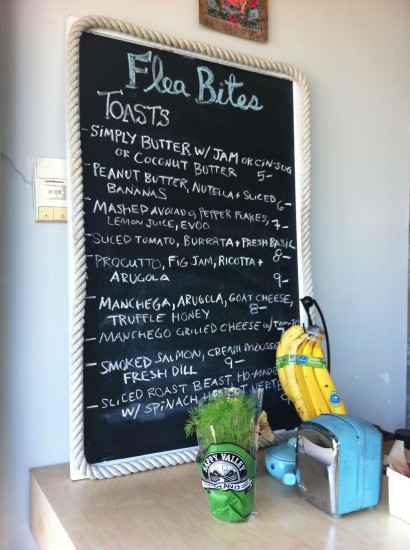 Flea Bites
TOASTS
- SIMPLY BUTTER W/ JAM OR CIN-SUG
OR COCONUT BUTTER 5-
- PEANUT BUTTER, NUTELLA + SLICED
BANANAS 6-
- MASHED AVOCADO, PEPPER FLAKES,
LEMON JUICE, EVOO 7-
- SLICED TOMATO, BURRATA + FRESH BASIL
8-
- PROCUTTO, FIG JAM, RICOTTA +
ARUGOLA 9-
- MANCHEGA, ARUGOLA, GOAT CHEESE,
TRUFFLE HONEY 8-
- MANCHEGO GRILLED CHEESE W/
- SMOKED SALMON, CREAM MOUSSE
FRESH DILL 9-
- SLICED ROAST BEAST, HO-MADE
W/ SPINACH 9
HAPPY VALLEY